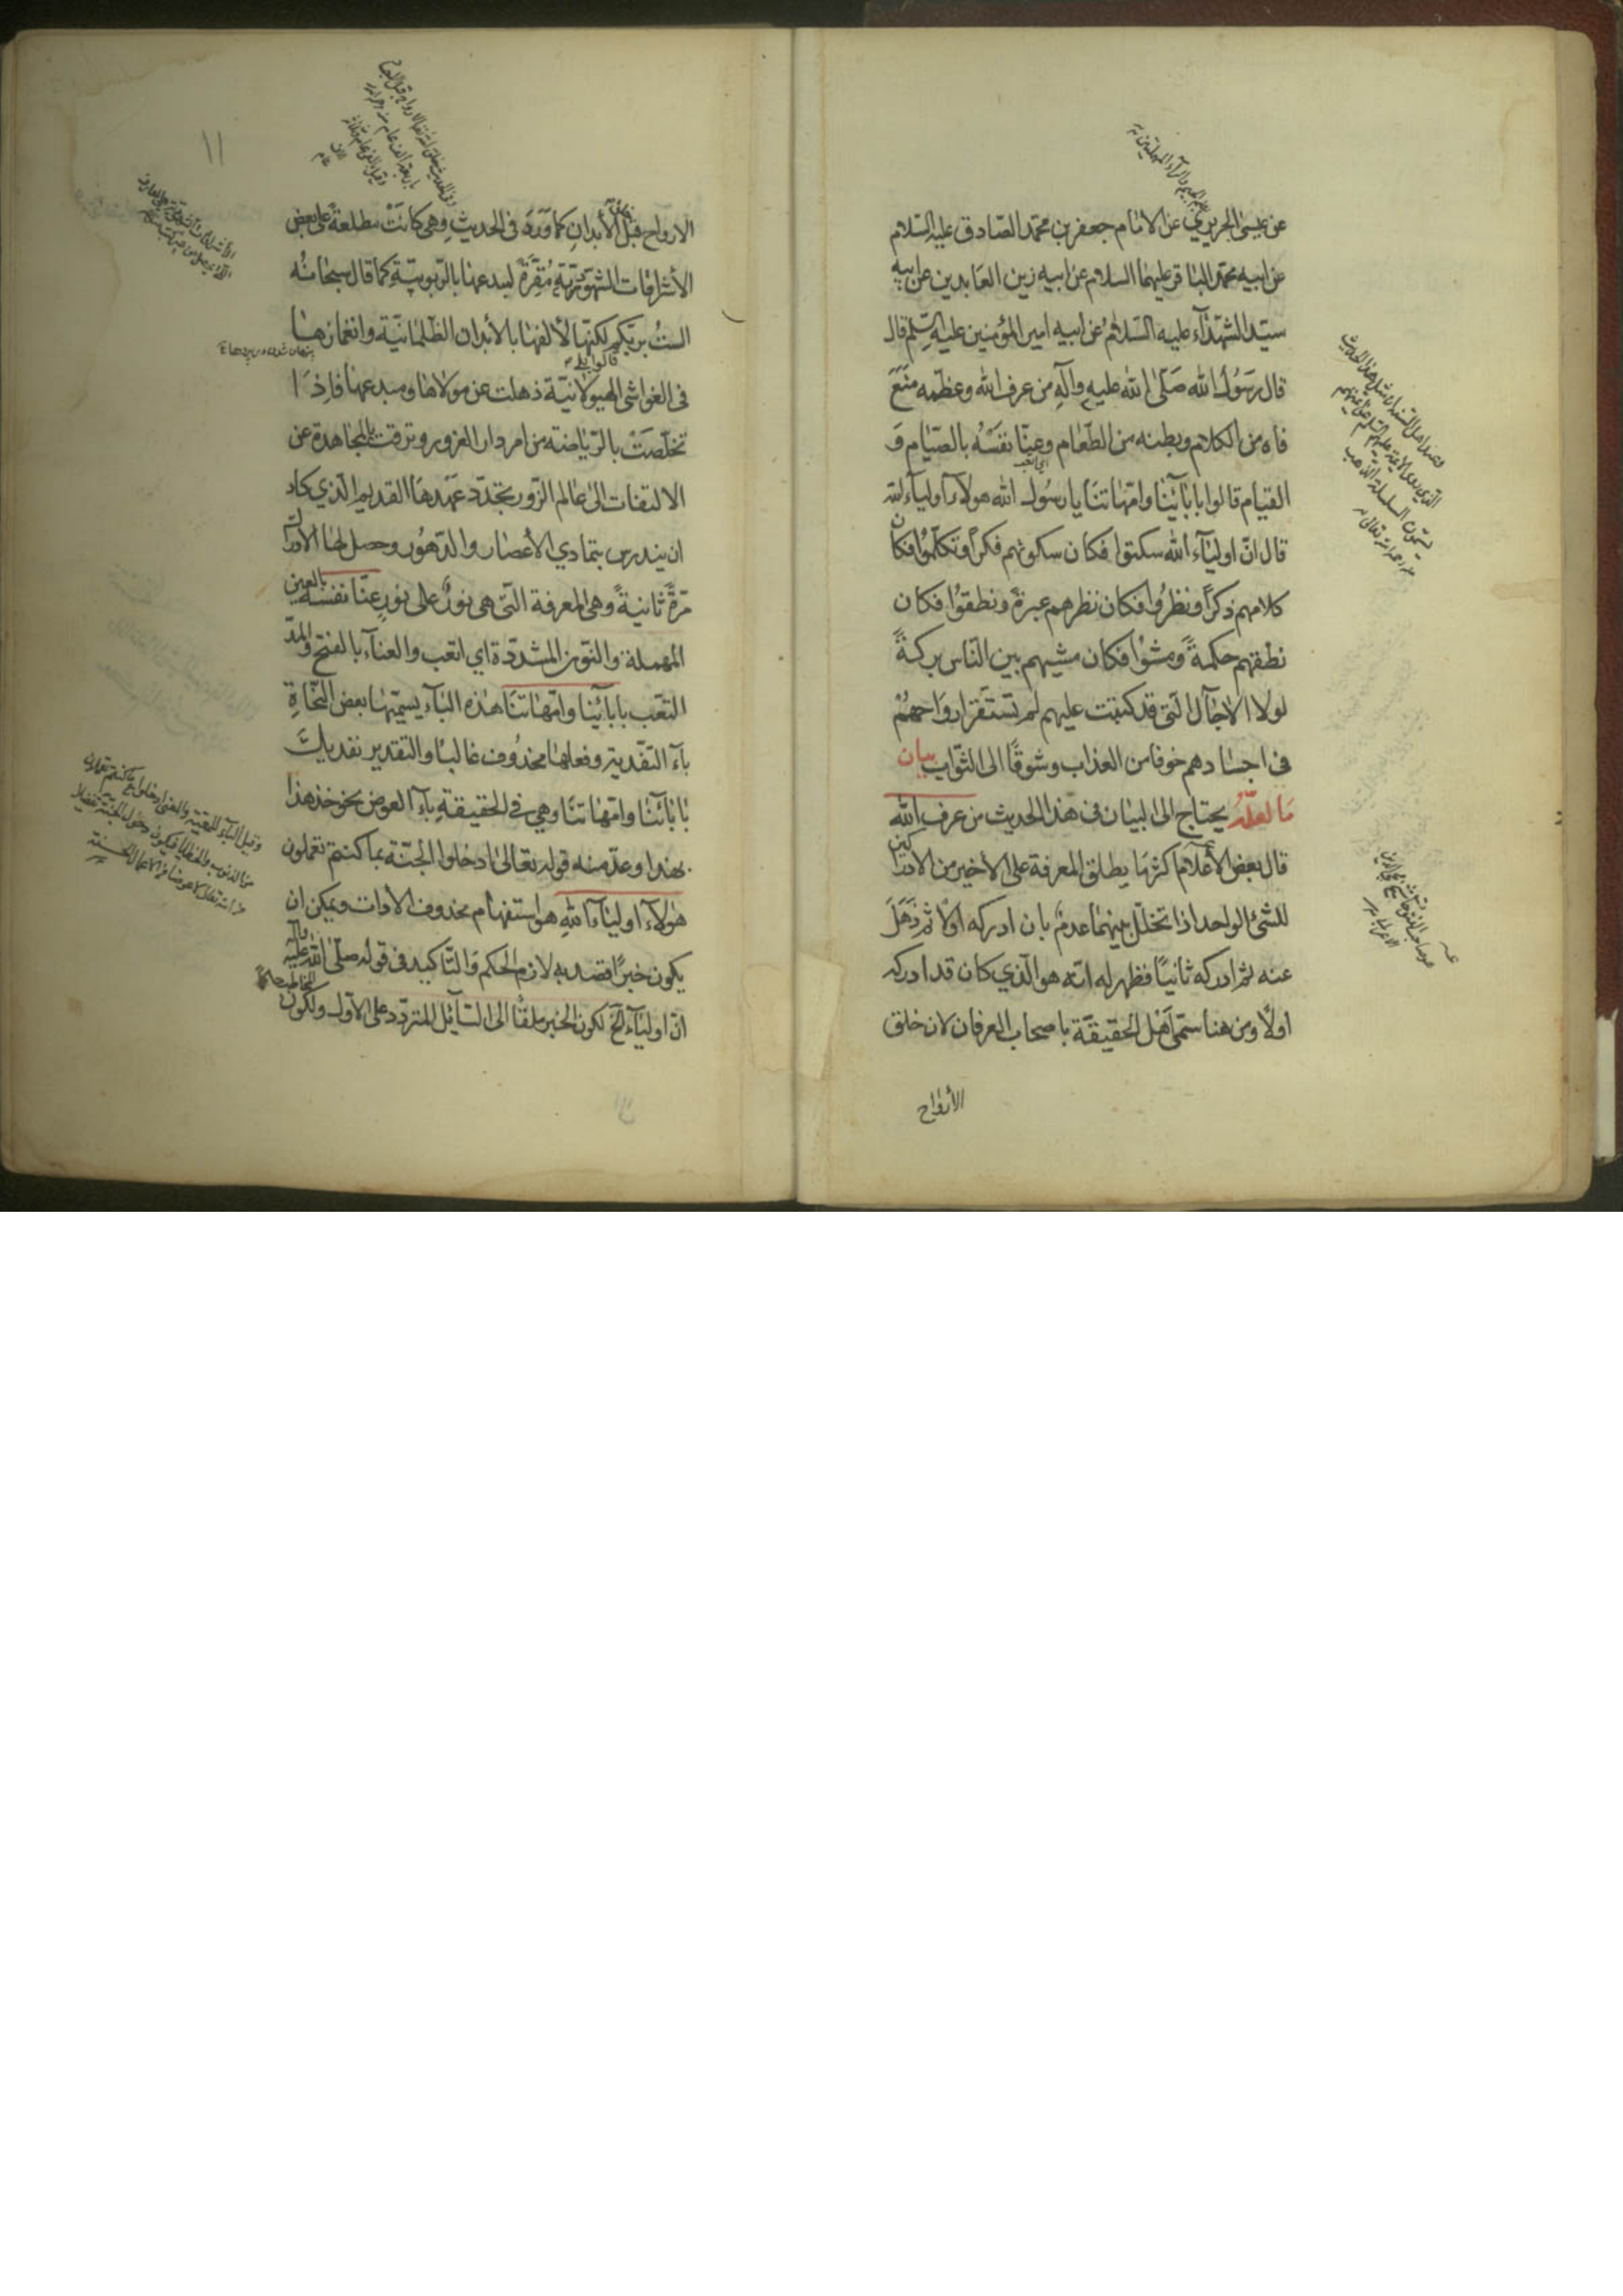 عن عيسى الجريري عن الامام جعفر بن محمد الصادق عليه السلام
عن ابيه محمد الباقر عليهما السلام عن ابيه زين العابدين عن ابيه
سيّد الشهدآء عليه السلام عن ابيه امير المؤمنين عليه السلم قال
قال رسول الله صلّى الله عليه وآله من عرف الله وعظّمه منع
فاه من الكلام وبطنه من الطعام وعنّا نفسه بالصيام و
القيام قالوا بابائنا وامهاتنا يا رسول الله هولاء اولياء الله
قال انّ اوليآء الله سكتوا فكان سكوتهم فكراً وتكلموا فكان
كلامهم ذكراً ونظروا فكان نظرهم عبرة ونطقوا فكان
نطقهم حكمةً ومشوا فكان مشيهم بين الناس بركةً
لولا الاجال التى قد كتبت عليهم لم تستقر ارواحهم
فى اجسادهم خوفا من العذاب وشوقًا الى الثواب بيان
ما لعلّه يحتاج الى البيان فى هذا الحديث من عرف الله
قال بعض الأعلام اكثر ما يطلق المعرفة على الأخير من الادراكين
للشئ الواحد اذا تخلّل بينهما عدم بان ادركه اولا ثم ذهل
عنه ثم ادركه ثانيًا فظهر له انّه هو الذي كان قد ادركه
اولًا ومن هنا سمّى اهل الحقيقة باصحاب العرفان لان خلق
الأرواح
١١
الارواح قبل الأبدان كما ورد فى الحديث وهى كانت مطلعة على بعض
الأشراقات الشهوديّة مُقِرّة لمبدعها بالربوبيّة كما قال سبحانه
الستُ بربّكم لكنّها لألفها بالأبدان الظلمانيّة وانغمارها
قالوا بلى
فى الغواشى الهيولانيّة ذهلت عن مولاها ومبدعها فاذا
تخلّصت بالرياضة من اسر دار الغرور وترقت بالمجاهدة عن
الالتفات الى عالم الزور تجدّد عهدها القديم الذي كاد
ان يندرس بتمادي الأعصار والدهور وحصل لها الادراك
مرّة ثانيةً وهى المعرفة التى هى نورٌ على نور عنّا نفسه بالعين
المهملة والنون المشدّدة اي اتعب والعناء بالفتح والمدّ
التعب بابائنا وامهاتنا هذه الباء يسمّيها بعض النحاة
بآء التفدية وفعلها محذوف غالبًا والتقدير نفديك
بابائنا وامهاتنا وهي فى الحقيقة باء العوض نحو خذ هذا
بهذا وعدّ منه قوله تعالى ادخلوا الجنّة بما كنتم تعملون
هولاء اوليآء الله هو استفهام محذوف الأدات ويمكن ان
يكون خبرًا قصد به لازم الحكم والتاكيد فى قوله صلّى الله عليه وآله
انّ اوليآء الخ لكون الخبر ملقًا الى السآئل المتردّد على الاول ولكون